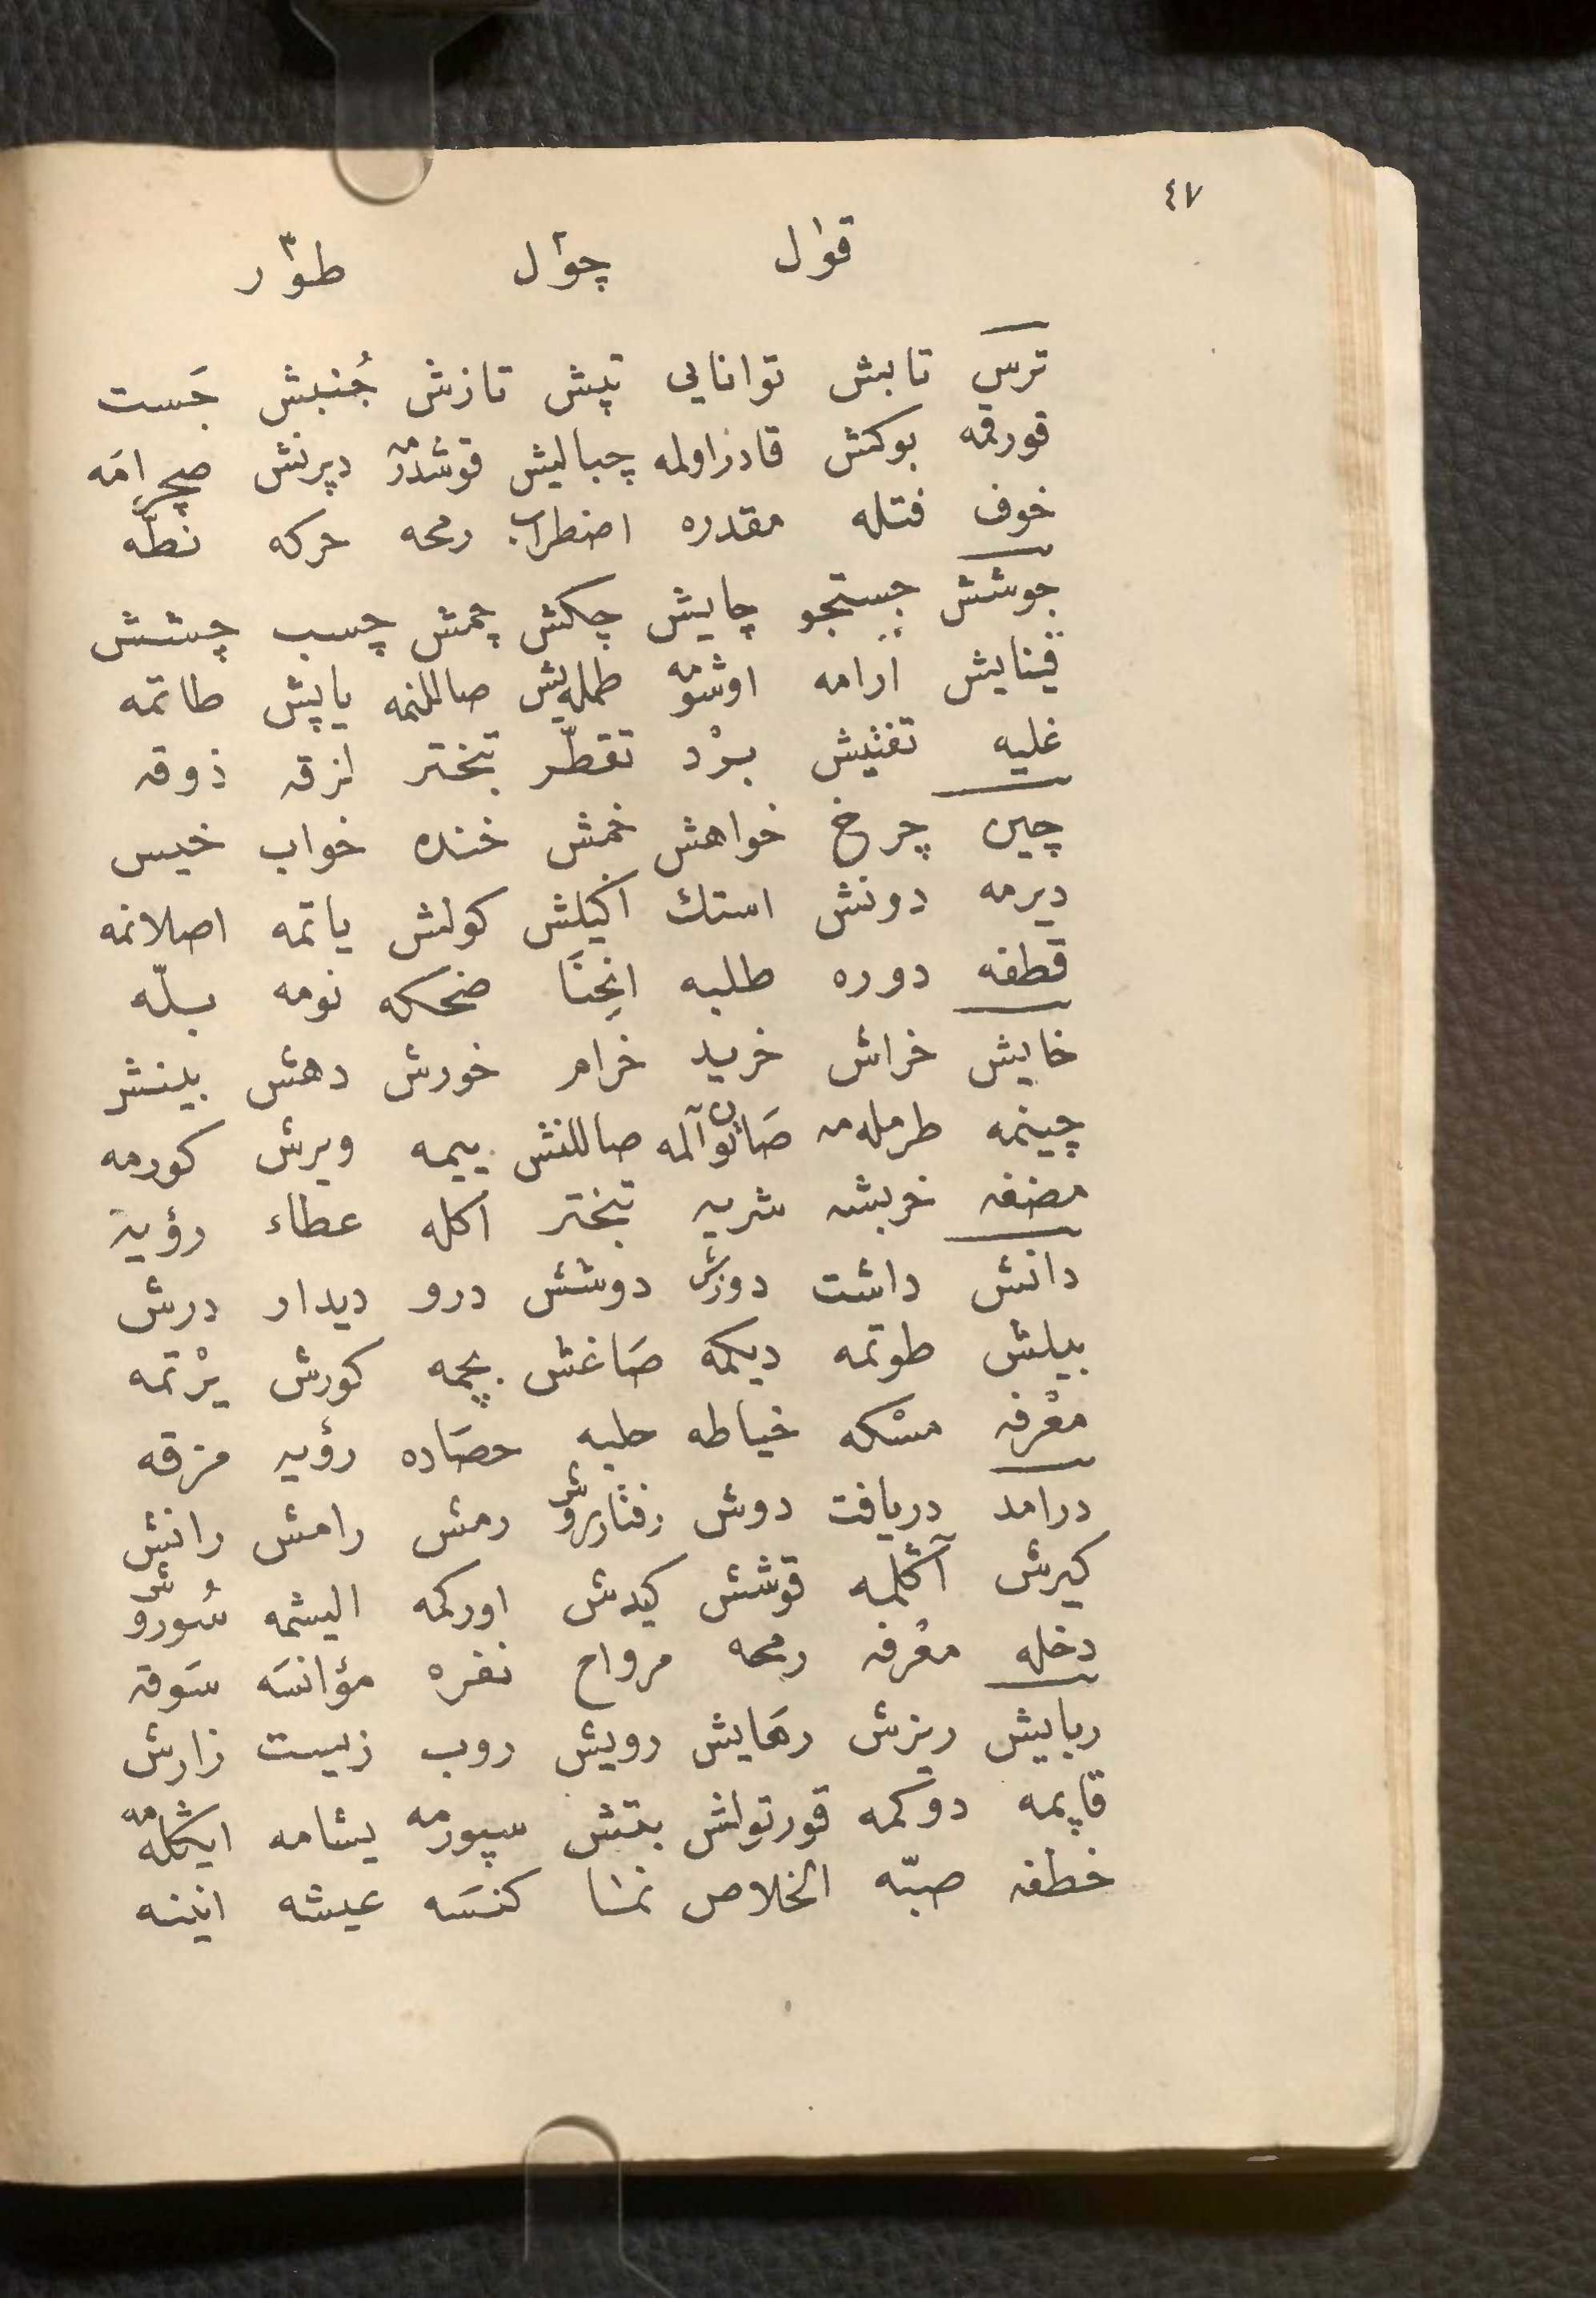 ٤٧
قوال چوال طوار
ترس تابش توانایی تپش تازش جُنبش جَست
قورقمه بوكش قادراولمه چبالیش قوشدرمه دپرنش صچرامَه
خوف فتله مقدره اضطراب رمحه حركه نطّه
جوشش جستجو چایش چكش چمش چسب چشش
قینایش آرامه اوشومه طمله‌یش صاللنمه یاپش طاتمه
غلیه تفتیش بردْ تقطّر تبختر لزقه ذوقه
چین چرخ خواهش خمش خنده خواب خیس
دیرمه دونش استك اكیلش كولش یاتمه اصلانمه
قطفه دوره طلبه انحِنَا ضحكه نومه بلّه
خایش خراش خرید خرام خورش دهش بینش
چینمه طرمله‌مه صَاتون آلمه صاللنش ییمه ویرش كورمه
مضغه خربشه شریه تبختر اكله عطاء رؤیة
دانش داشت دوزش دوشش درو دیدار درش
بیلش طوتمه دیكمه صَاغش بچمه كورش یرْتمه
معْرفه مسْكه خیاطه حلبه حصَاده رؤیه مزقه
درامد دریافت دوش رفتار روش رمش رامش رانش
كیرش آكلمه قوشش كیدش اوركمه الیشمه سُورش
دخله معْرفه رمحه مرواح نفره مؤانسَه سَوقه
ربایش ریزش رهَایش رویش روب زیست زارش
قاپمه دوكمه قورتولش بتش سپورمه یشامه ایكله‌مه
خطفه صبّه الخلاص نمَا كنسَه عیشه انینه